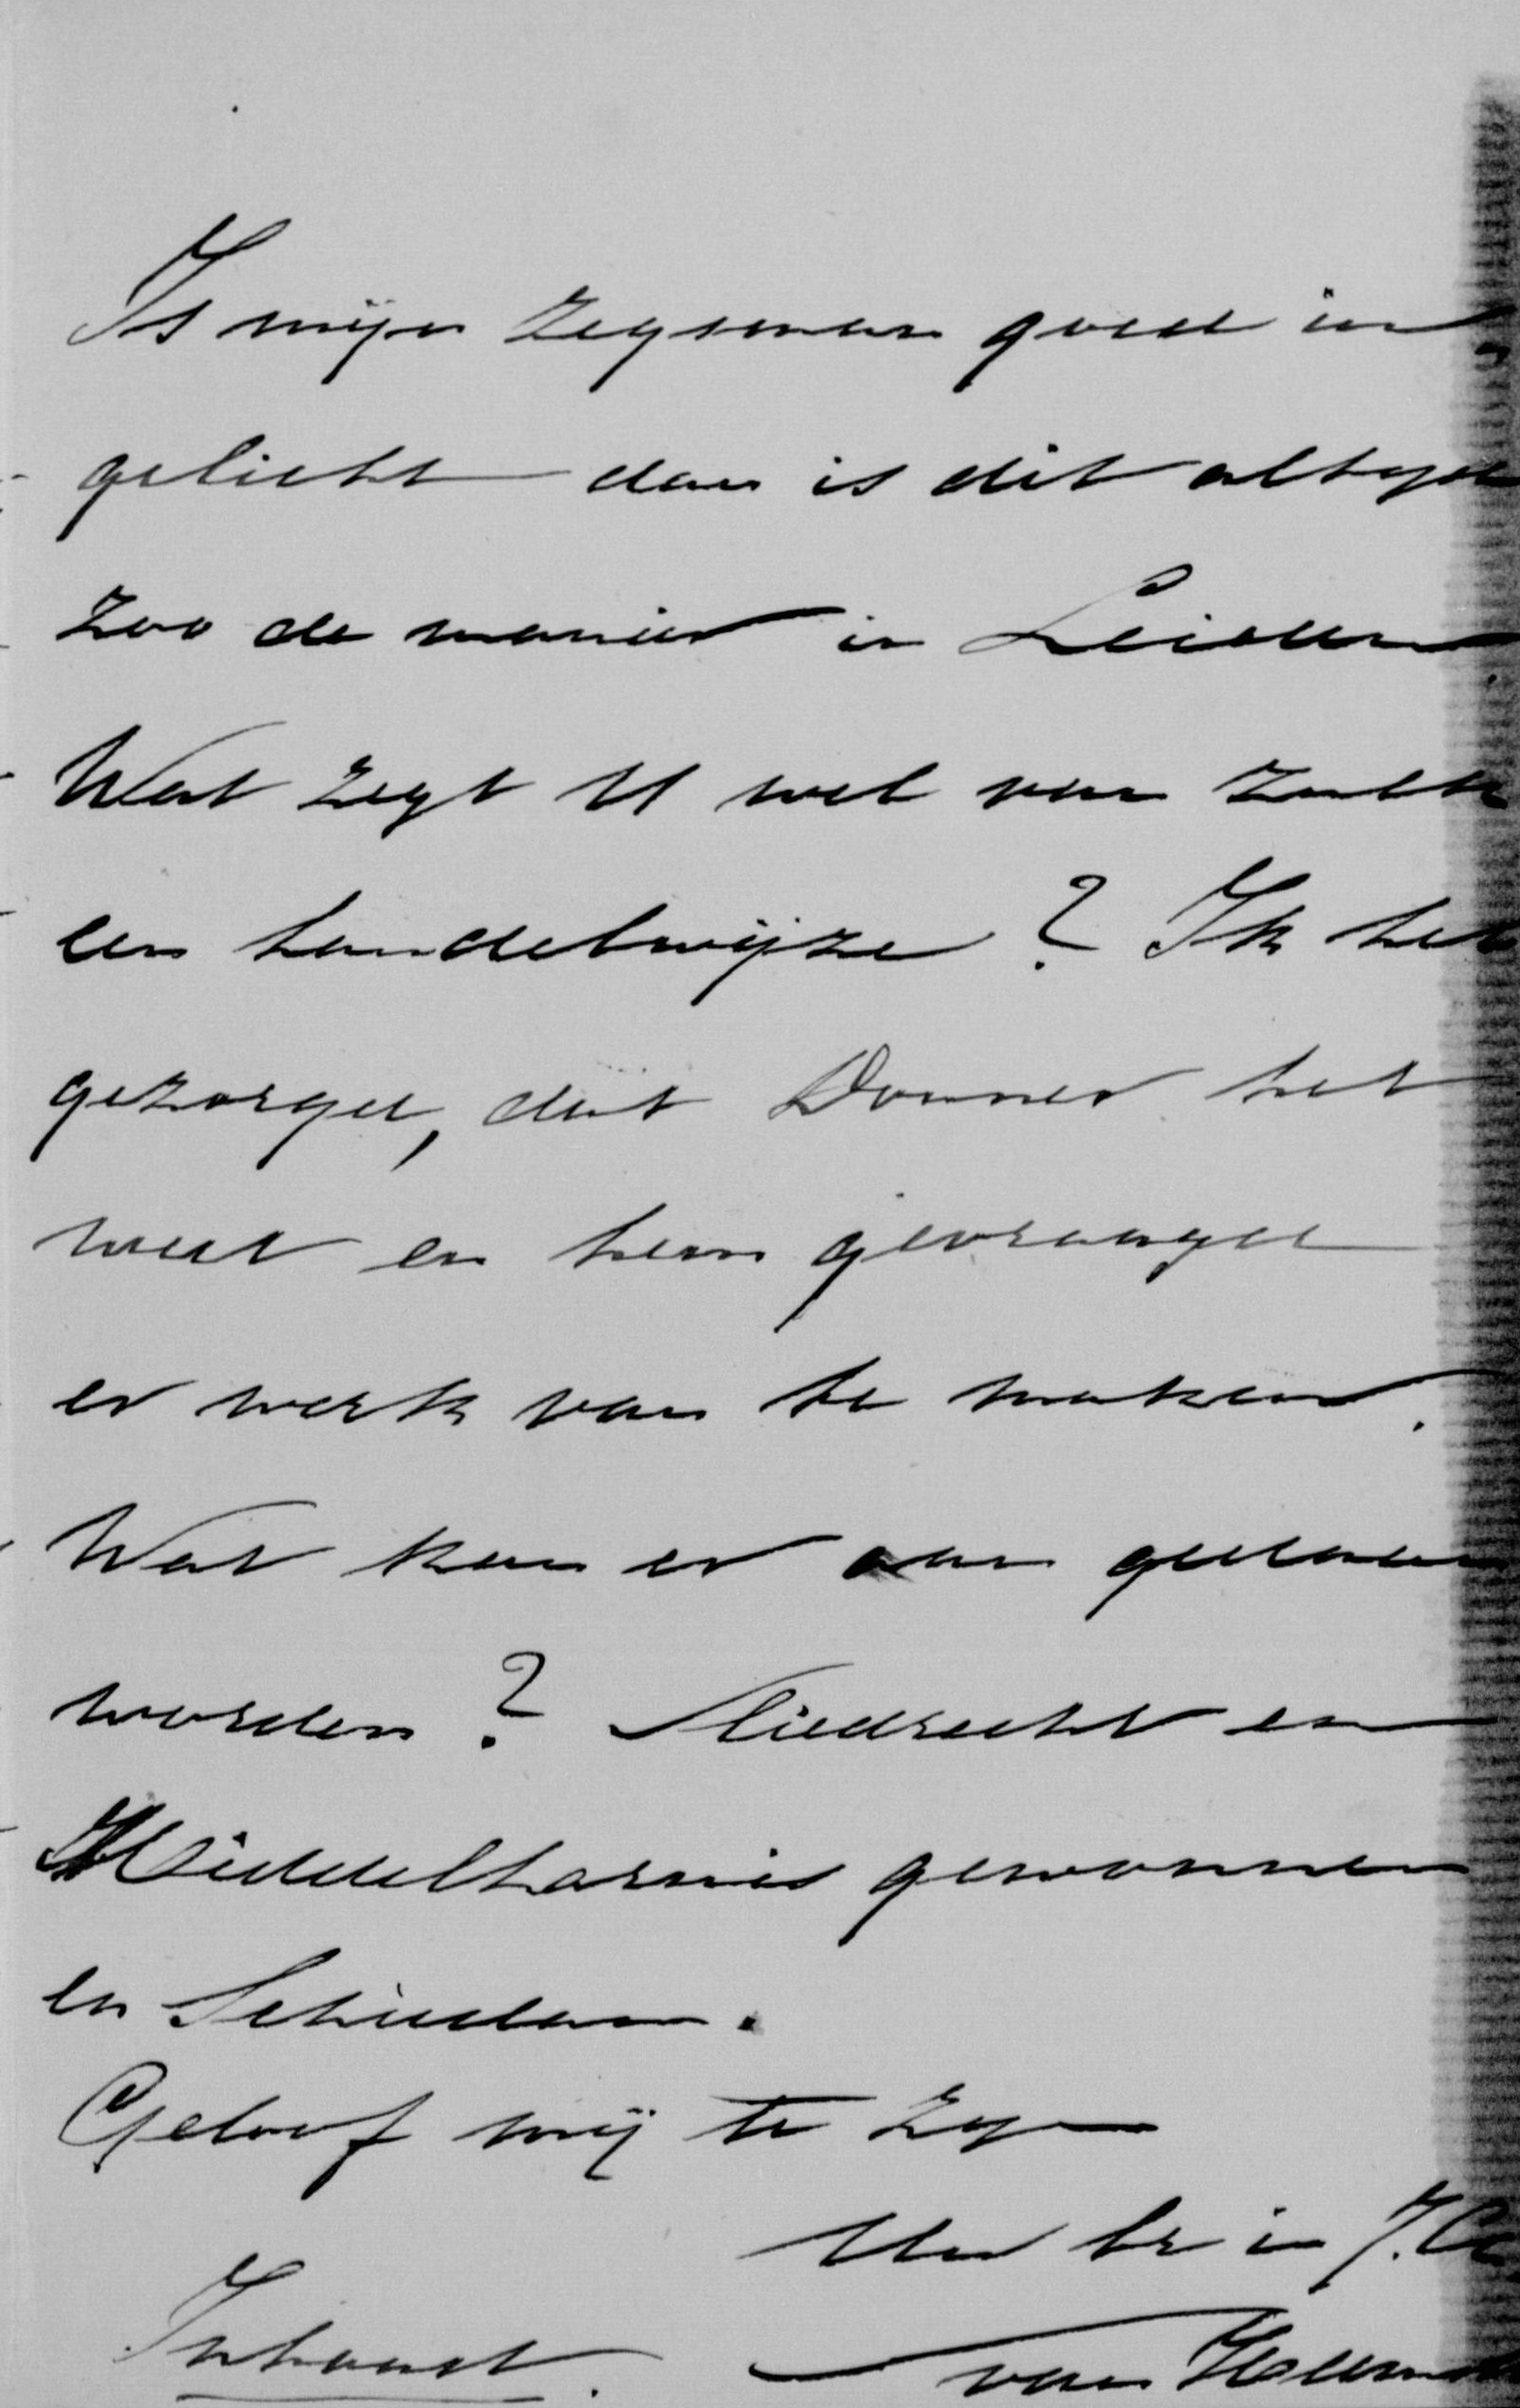 Is mijn zegsman goed in
gelicht dan is dit altyd
zoo de manier in Leiden.
Wat zegt U wel van zulk
een handelwijze? Ik heb
gezorgd, dat Donner het
weet en hem gevraagd
er werk van te maken.
Wat kan er aan gedaan
worden? Sliedrecht en
Middelharnis gewonnen
en Schiedam.
Geloof mij te zyn
Uw br in J.C.
Inhaast. van